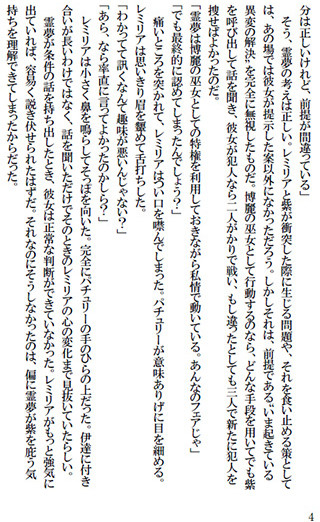 分は正しいけれど、前提が間違っている」
　そう、霊夢の考えは正しい。レミリアと紫が衝突した際に生じる問題や、それを食い止める策として
は、あの場では彼女が提示した案以外になかっただろう。しかしそれは、前提である〝いま起きている
異変の解決〟を完全に無視したものだ。博麗の巫女として行動するのなら、どんな手段を用いてでも紫
を呼び出して話を聞き、彼女が犯人なら二人がかりで戦い、もし違ったとしても三人で新たに犯人を
捜せばよかったのだ。
「霊夢は博麗の巫女としての特権を利用しておきながら私情で動いている。あんなのフェアじゃ」
「でも最終的に認めてしまったんでしょう？」
　痛いところを突かれて、レミリアはつい口を噤んでしまった。パチュリーが意味ありげに目を細める。
レミリアは思いきり眉を顰めて舌打ちした。
「わかってて訊くなんて趣味が悪いんじゃない？」
「あら、なら率直に言ってよかったのかしら？」
　レミリアは小さく鼻を鳴らしてそっぽを向いた。完全にパチュリーの手のひらの上だった。伊達に付き
合いが長いわけではなく、話を聞いただけでそのときのレミリアの心の変化まで見抜いていたらしい。
　霊夢が条件の話を持ち出したとき、彼女は正常な判断ができていなかった。レミリアがもっと強気に
出ていれば、容易く説き伏せられたはずだ。それなのにそうしなかったのは、偏に霊夢が紫を庇う気
持ちを理解できてしまったからだった。
4